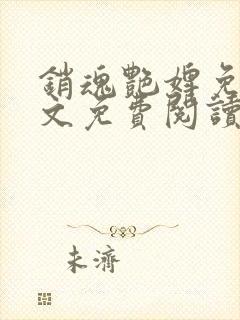 銷魂艷婢免
文免費閱讀
未濟